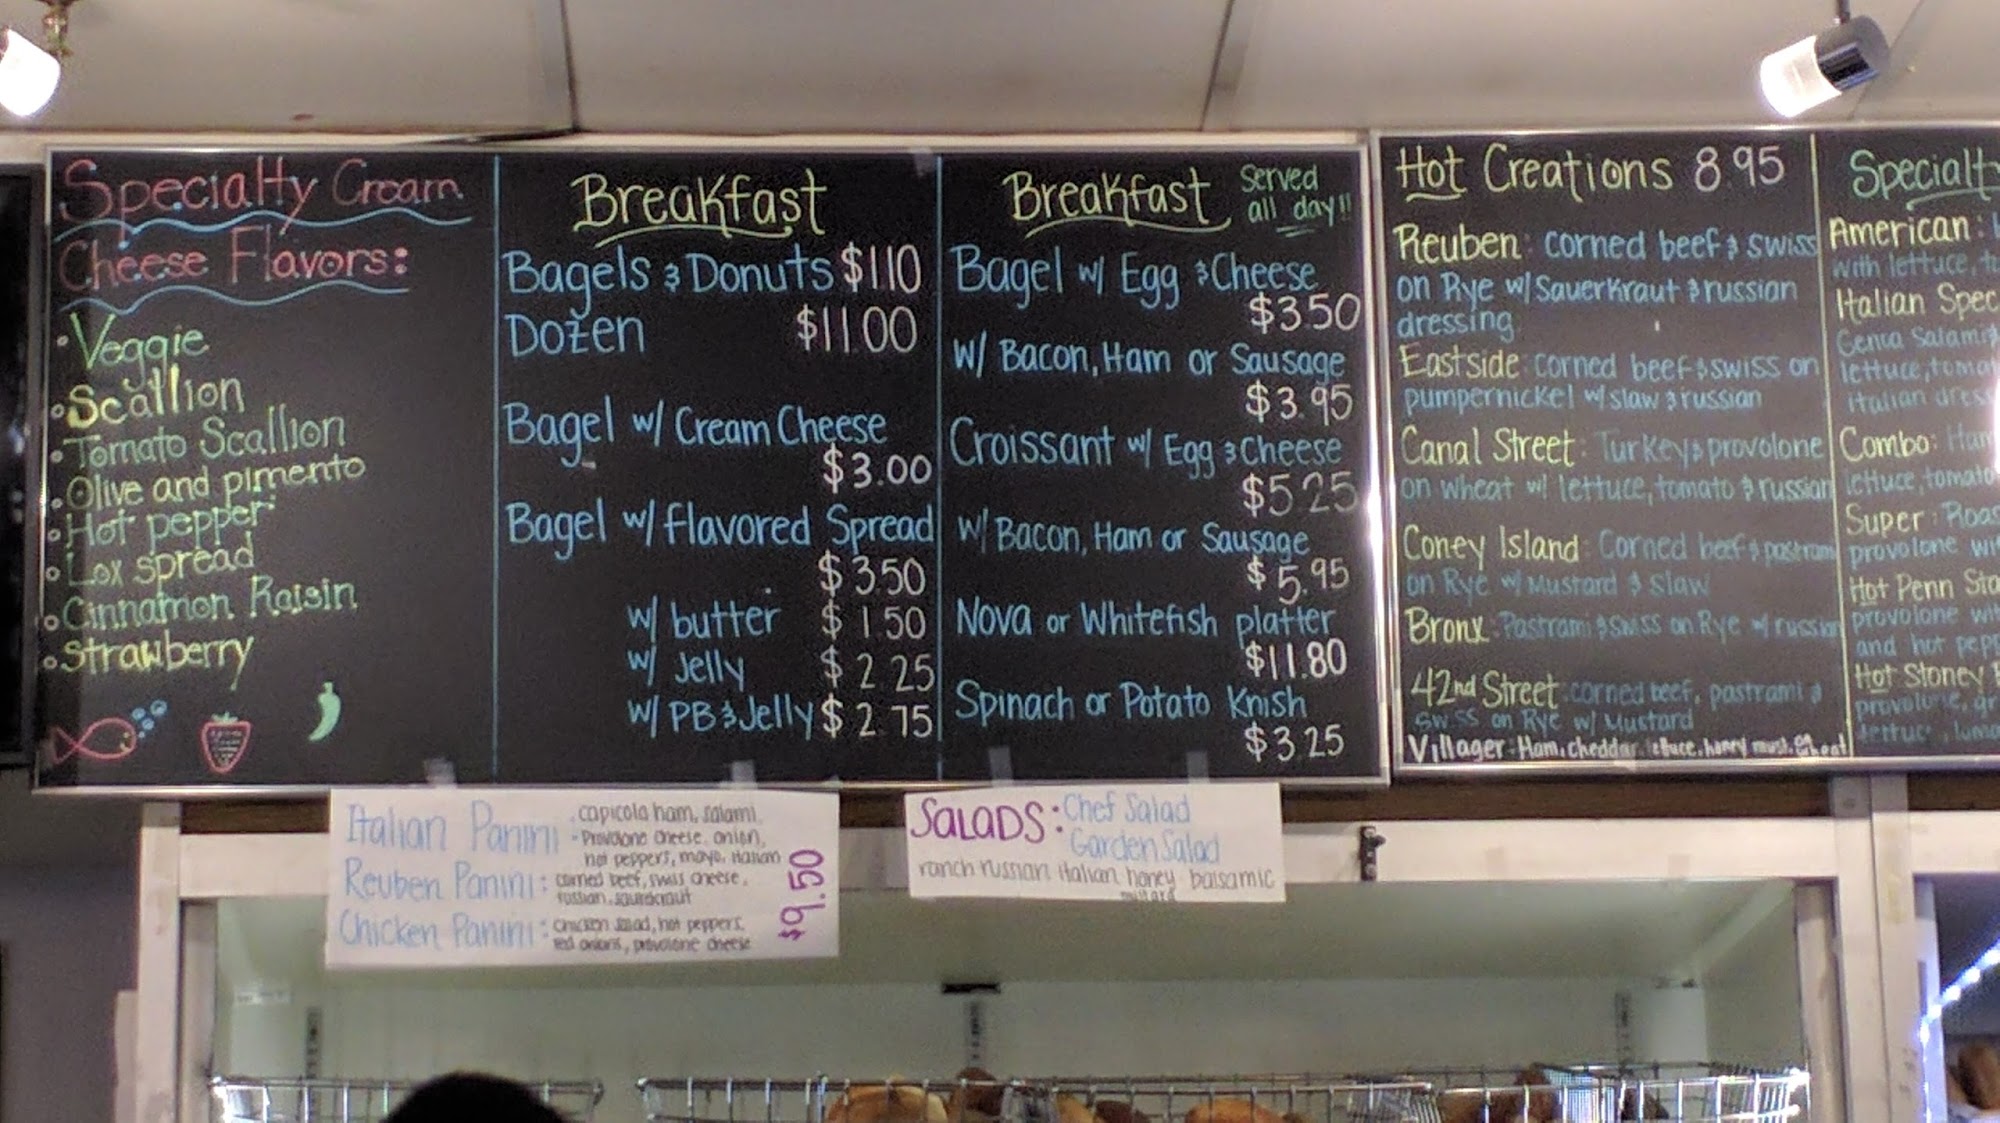 Specialty Cream
Cheese Flavors:
• Veggie
• Scallion
• Tomato Scallion
• Olive and pimento
• Hot pepper
• Lox spread
• Cinnamon Raisin
• Strawberry
Breakfast
Bagels & Donuts $1.10
Dozen $11.00
Bagel w/ Cream Cheese
$3.00
Bagel w/ flavored Spread
$3.50
w/ butter $1.50
w/ Jelly $2.25
w/ PB & Jelly $2.75
Breakfast Served
all day!!
Bagel w/ Egg & Cheese
$3.50
w/ Bacon, Ham or Sausage
$3.95
Croissant w/ Egg & Cheese
$5.25
w/ Bacon, Ham or Sausage
$5.95
Nova or Whitefish platter
$11.80
Spinach or Potato Knish
$3.25
Hot Creations 8.95
Reuben: corned beef & swiss
on Rye w/ Sauerkraut & russian
dressing
Eastside: corned beef & swiss on
pumpernickel w/ slaw & russian
Canal Street: Turkey & provolone
on wheat w/ lettuce, tomato & russian
Coney Island: Corned beef & pastrami
on Rye w/ Mustard & Slaw
Bronx: Pastrami & swiss on Rye w/ russian
42nd Street: corned beef, pastrami &
swiss on Rye w/ Mustard
Villager: Ham, cheddar, lettuce, honey must. on wheat
American:
with lettuce,
Italian
Genoa Salami
lettuce,
italian
Combo:
lettuce, tomato
Super:
provolone
Hot Penn
provolone
and hot
Hot Stoney
provolone,
Italian Panini: capicola ham, salami,
provolone cheese, onion,
hot peppers, mayo, italian
Reuben Panini: corned beef, swiss cheese,
russian, saurkraut
Chicken Panini: chicken salad, hot peppers,
red onions, provolone cheese
$9.50
SALADS: Chef Salad
Garden Salad
ranch russian italian honey balsamic
mustard